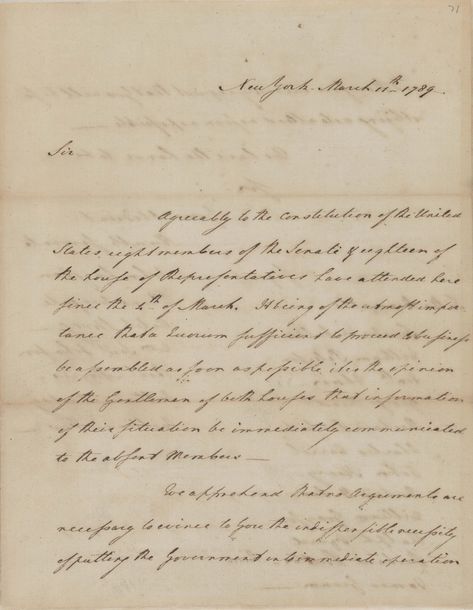 71
New York. March 11th 1789.
Sir
Agreeably to the Constitution of the United
States, eight members of the Senate & eighteen of
the house of Representatives have attended here
since the 4th of March. It being of the utmost impor
tance that a Quorum sufficient to proceed to business
be assembled as soon as possible, it is the opinion
of the Gentlemen of both houses that information
of their situation be immediately communicated
to the absent Members—
We apprehend that no arguments are
necessary to evince to you the indispensible necessity
of putting the Government into immediate operation